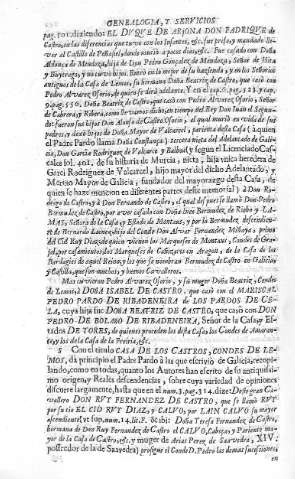 GENEALOGIA, Y SERVICIOS
pag. 101. diziendo: EL DUQUE DE ARJONA DON FADRIQUE de
Castro, en las diferencias que tuvo con los Infantes, &c. fue preso, y mandado llevar
al Castillo de Peñafiel, donde murió a pocos dias, &c. Fue casado con Doña
Aldonça de Mendoça, hija de Don Pedro Gonçalez de Mendoça, Señor de Hita
y Buytrago, y no tuvo hijos. Entró en lo mejor de su hazienda, y en los Señorios
antiguos de la Casa de Lemos, su hermana Doña Beatriz de Castro, que casó con
Pedro Alvarez Osorio, de quien se dirá adelante. Y en el cap. 6. pag. 523. y cap.
9. pag. 556. Doña Beatriz de Castro, que casó con Pedro Alvarez Osorio, Señor
de Cabrera, y Ribera, como se vió arriba en tiempo del Rey Don Juan el Segundo:
fueron sus hijos Don Alonso de Castro Osorio, al qual murió en vida de sus
padres, y dexó hijos de Doña Mayor de Valcarcel, parienta desta Casa (à quien
el Padre Pardo llama Doña Constança) tercera nieta del Adelantado de Galicia,
Don Garcia Rodriguez de Valcarce y Balboa, y segun el Licenciado
cales fol. 401. de su historia de Murcia, nieta, hija unica heredera de
Garci Rodriguez de Valcarcel, hijo mayor del dicho Adelantado, y
Merino Mayor de Galicia, fundador del mayorazgo desta Casa, de
quien se haze mencion en diferentes partes deste memorial) à Don Rodrigo
de Castro, y à Don Fernando de Castro, el qual del padre se llamó Don Pedro
Bermudez de Castro, por aver casado con Doña Ines Bermudez, de Riaño
MAS, Señora de la Casa y Estado de Montaos, y por los Bermudez, descendientes
de Bernardo Lainez, hijo del Conde Don Alvar Fernandez, Minaya, primo
del Cid Ruy Diaz, de quien vienen los Marqueses de Montaos, Condes de
que casamientos los Marqueses de en Aragon, de la Casa de los
de aquel Reyno, y los que se nombran Bermudez de Castro en Galicia
y Castilla, que son muchos, y buenos Cavalleros.
Mas tuvieron Pedro Alvarez Osorio, y su muger Doña Beatriz, Condes
de Lemos, à DOÑA ISABEL DE CASTRO, que casó con el MARISCAL
PEDRO PARDO DE RIBADENEIRA de LOS PARDOS DE CELA,
cuya hija fue DOÑA BEATRIZ DE CASTRO, que casó con DON
PEDRO DE BOLAÑO DE RIBADENEIRA, Señor de la Casa y Estados
DE TORES, de quienes proceden los desta Casa, los Condes de
y los de la Casa de la &c.
5 Con el titulo CASA DE LOS CASTROS, CONDES DE LEMOS,
dà principio el Padre Pardo à la que escrivió de Galicia, recopilando,
como en todas, quanto los Autores han escrito de su antiquissimo
origen, y Reales descendencias, sobre cuya variedad de opiniones
discurre largamente, hasta que en el num. 3. pag. 314. dize: Deste gran Cavallero
DON RUY FERNANDEZ DE CASTRO, que se llamó RUY
por su tio EL CID RUY DIAZ, y CALVO, por LAIN CALVO su mayor
ascendiente, &c. Y sup. num. 14. lit. F. & ibi: Doña Teresa Fernandez de Castro,
hermana de Don Ruy Fernandez de Castro el CALVO, Cabeça, y Pariente mayor
de la Casa de Castro, &c. y muger de Arias Perez de Saavedra, XIV.
posseedor de la de Saavedra) prosigue el Conde D. Pedro las demas sucessiones,
en